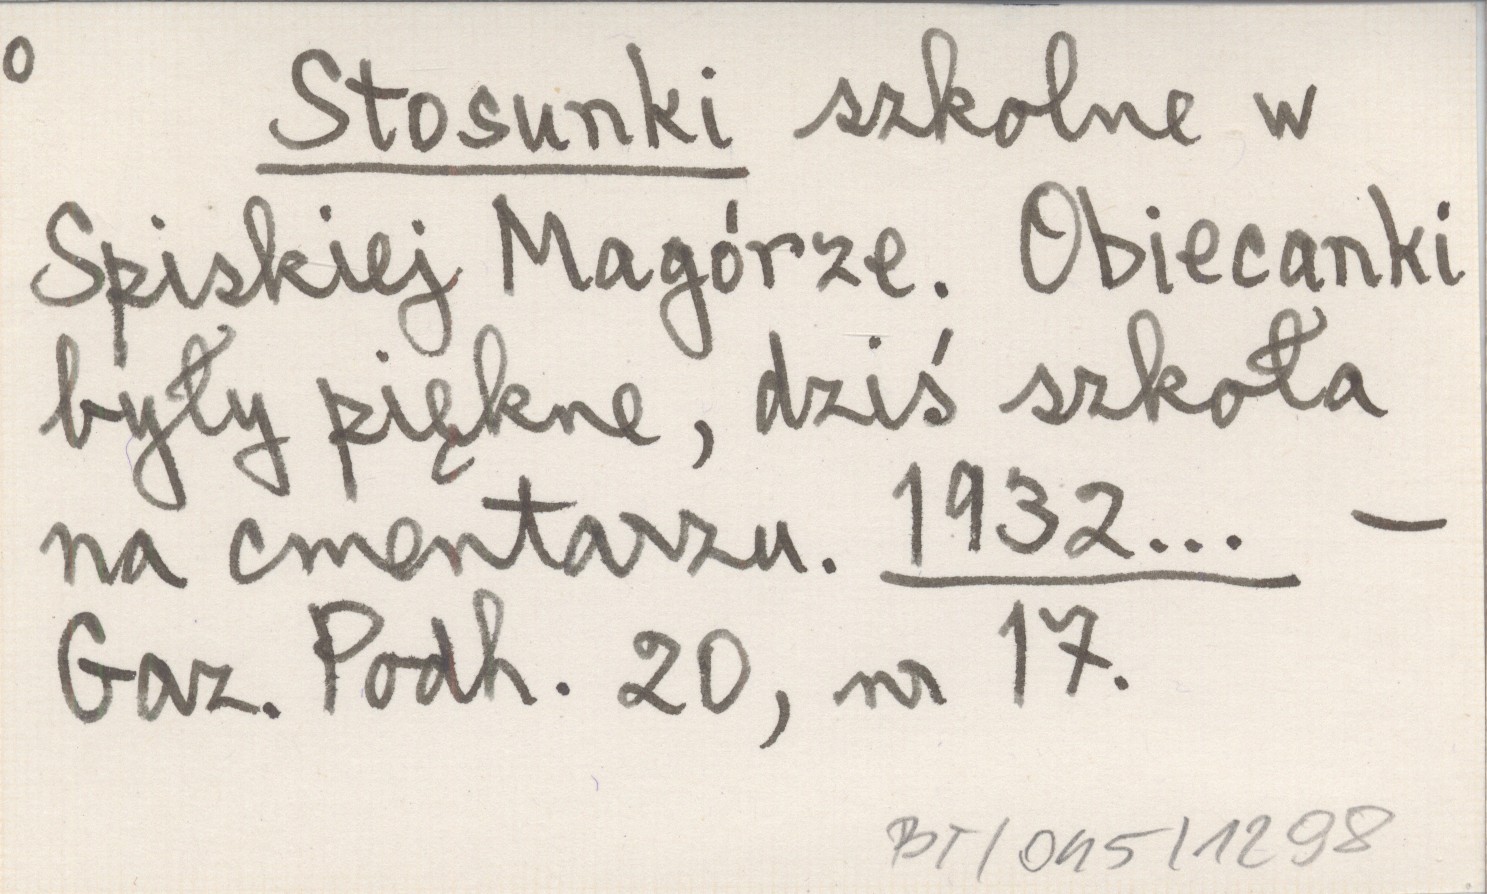 o
Stosunki szkolne w
Spiskiej Magórze. Obiecanki
były piękne, dziś szkoła
na cmentarzu. 1932... —
Gaz. Podh. 20, nr 17.
BT/045/1298